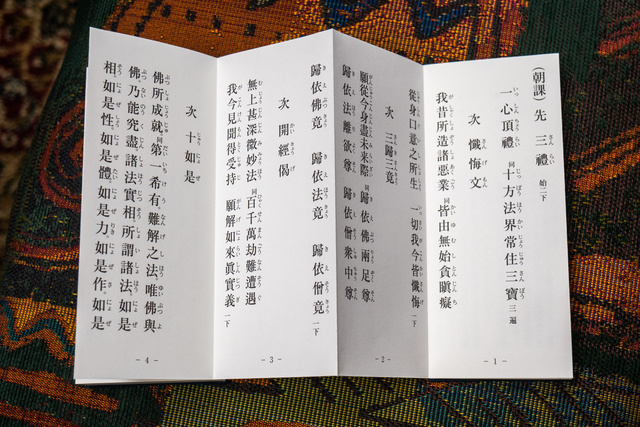 (朝課) 先 三禮 始二下
一心頂禮 同 十方法界常住三寶 三遍
次 懺悔文
我昔所造諸惡業 同 皆由無始貪瞋癡
- 1 -
從身口意之所生 一切我今皆懺悔 一下
次 三歸三竟
願從今身盡未來際 同 歸依佛兩足尊
歸依法離欲尊 歸依僧衆中尊
- 2 -
歸依佛竟 歸依法竟 歸依僧竟 一下
次 開經偈
無上甚深微妙法 同 百千萬劫難遭遇
我今見聞得受持 願解如來眞實義 一下
- 3 -
次 十如是
佛所成就 同 第一希有難解之法、唯佛與
佛乃能究盡諸法實相、所謂諸法如是
相、如是性、如是體、如是力、如是作、如是
- 4 -